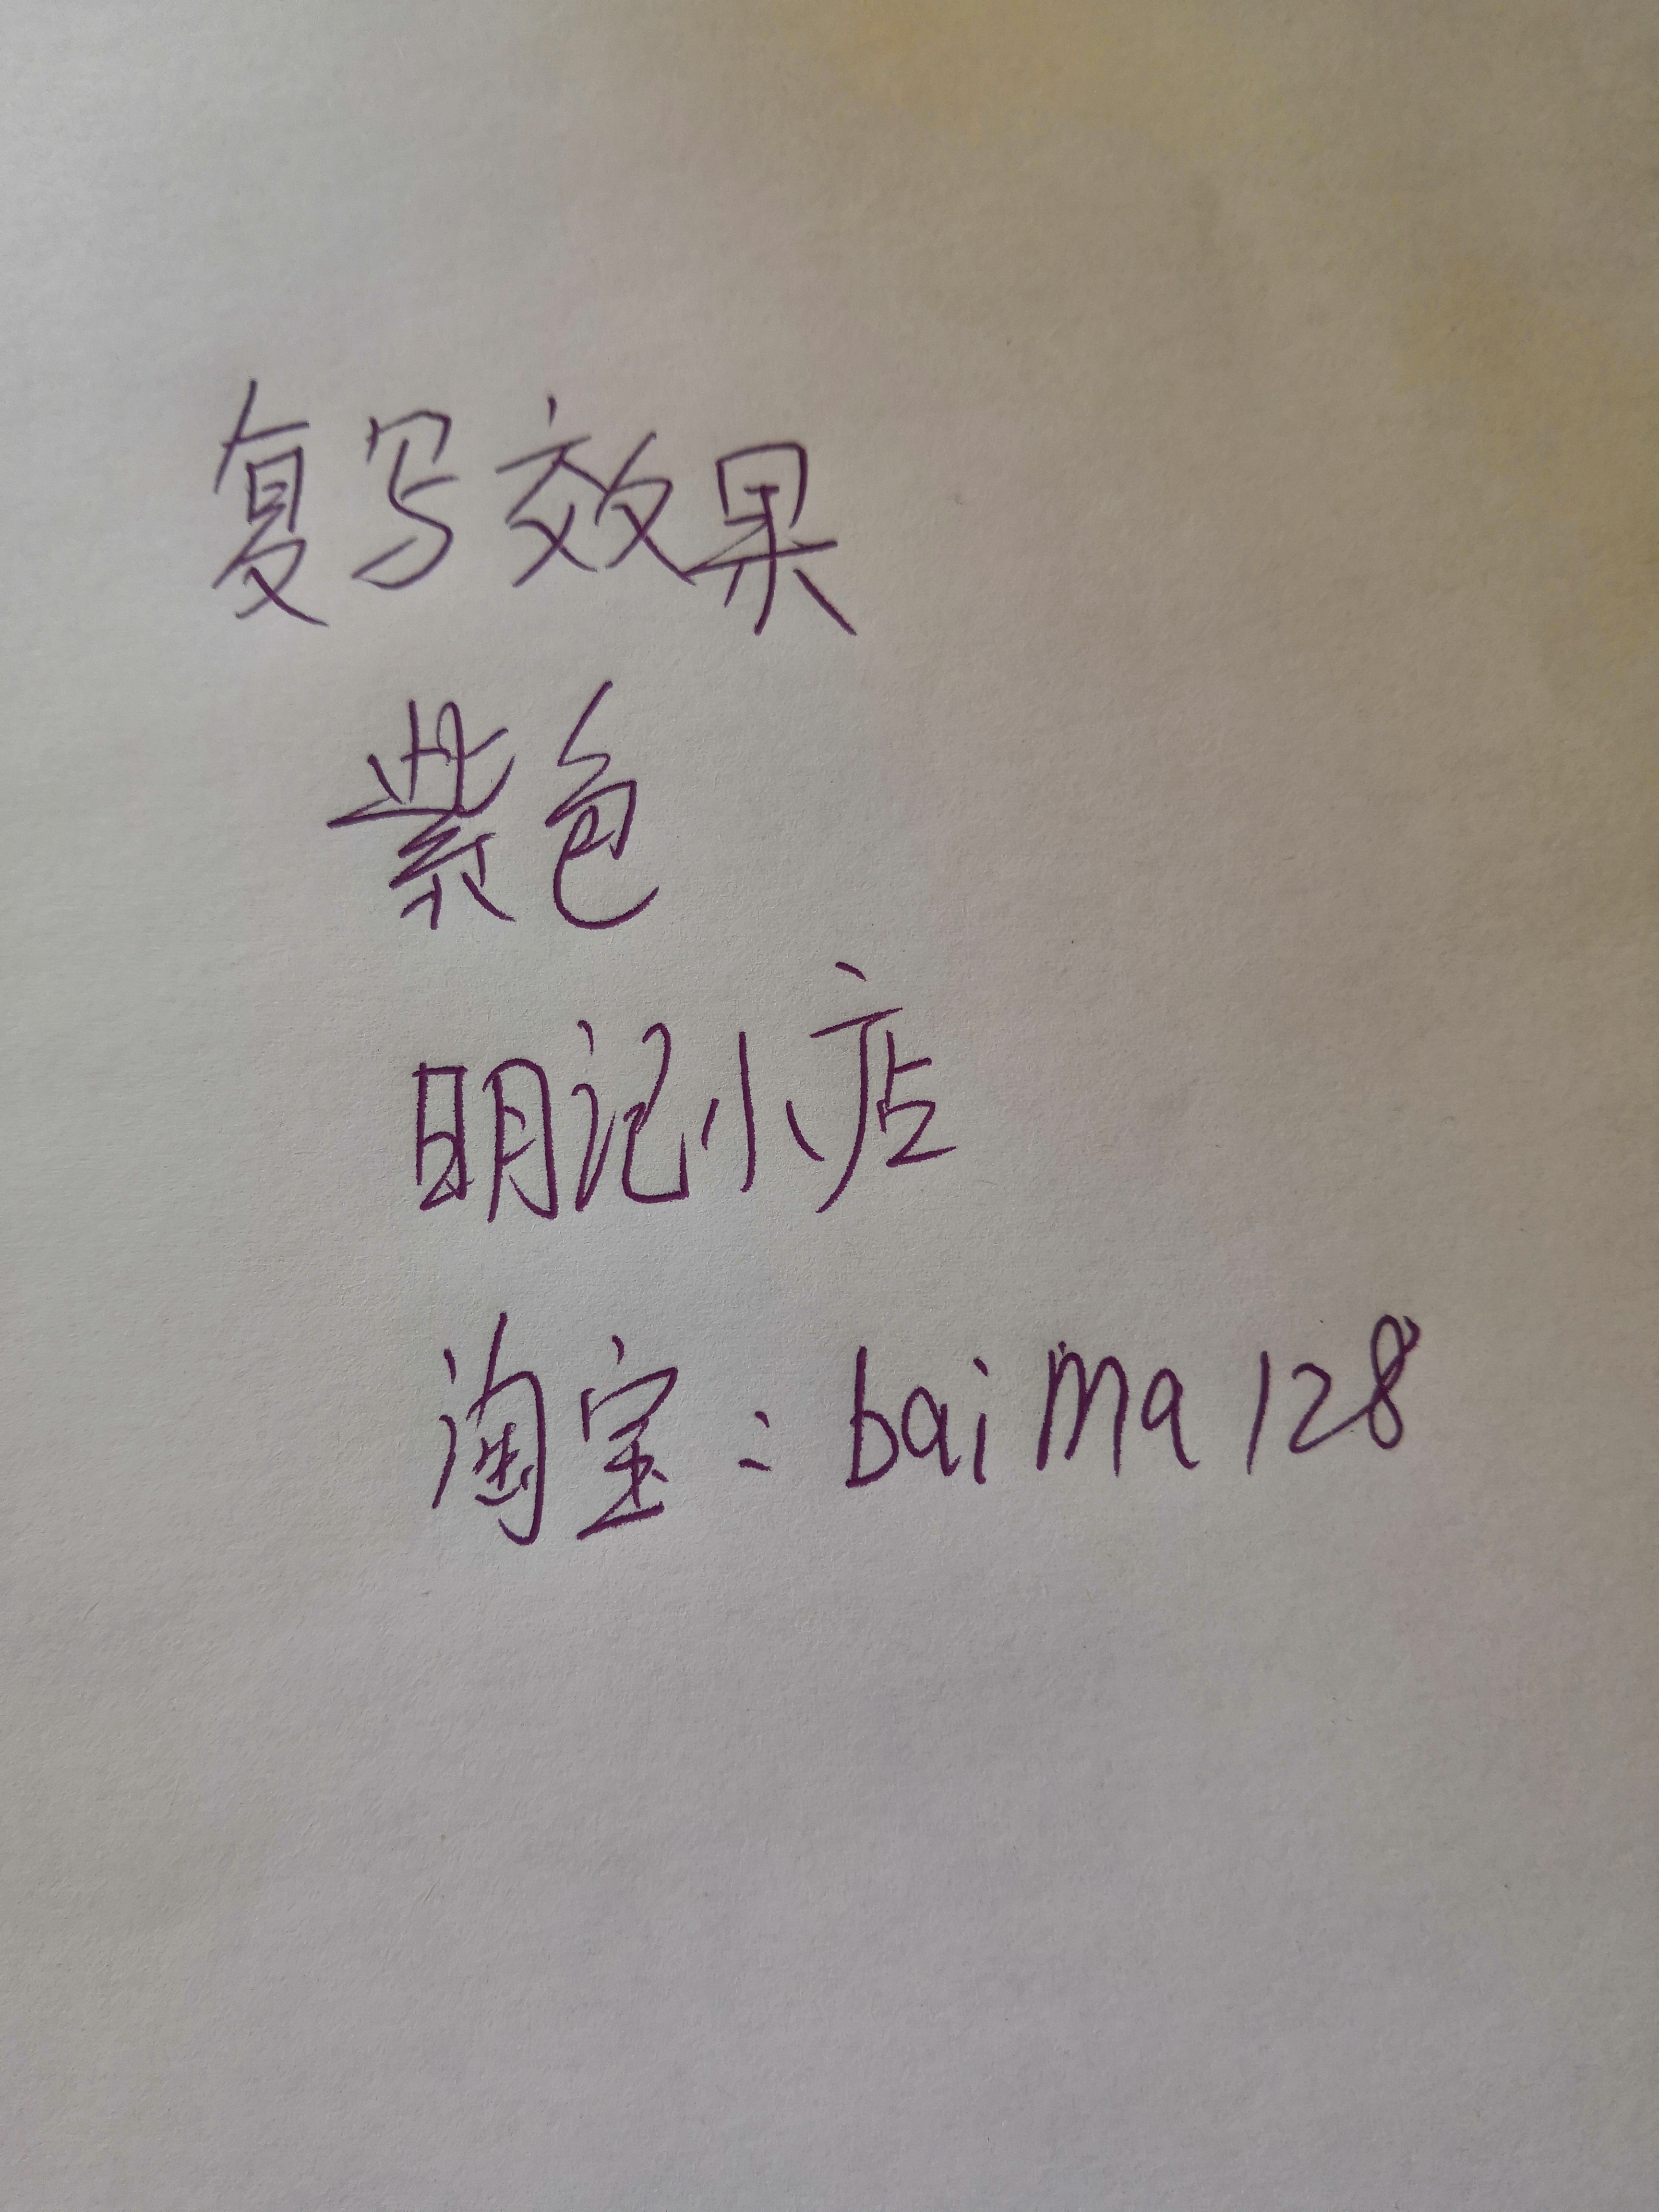 复写效果
紫色
明记小店
淘宝：baima128